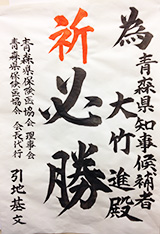 為
青森県知事候補者
大竹進殿
祈
必勝
青森県保険医協会 理事会
青森県保険医協会 会長代行
引地基文